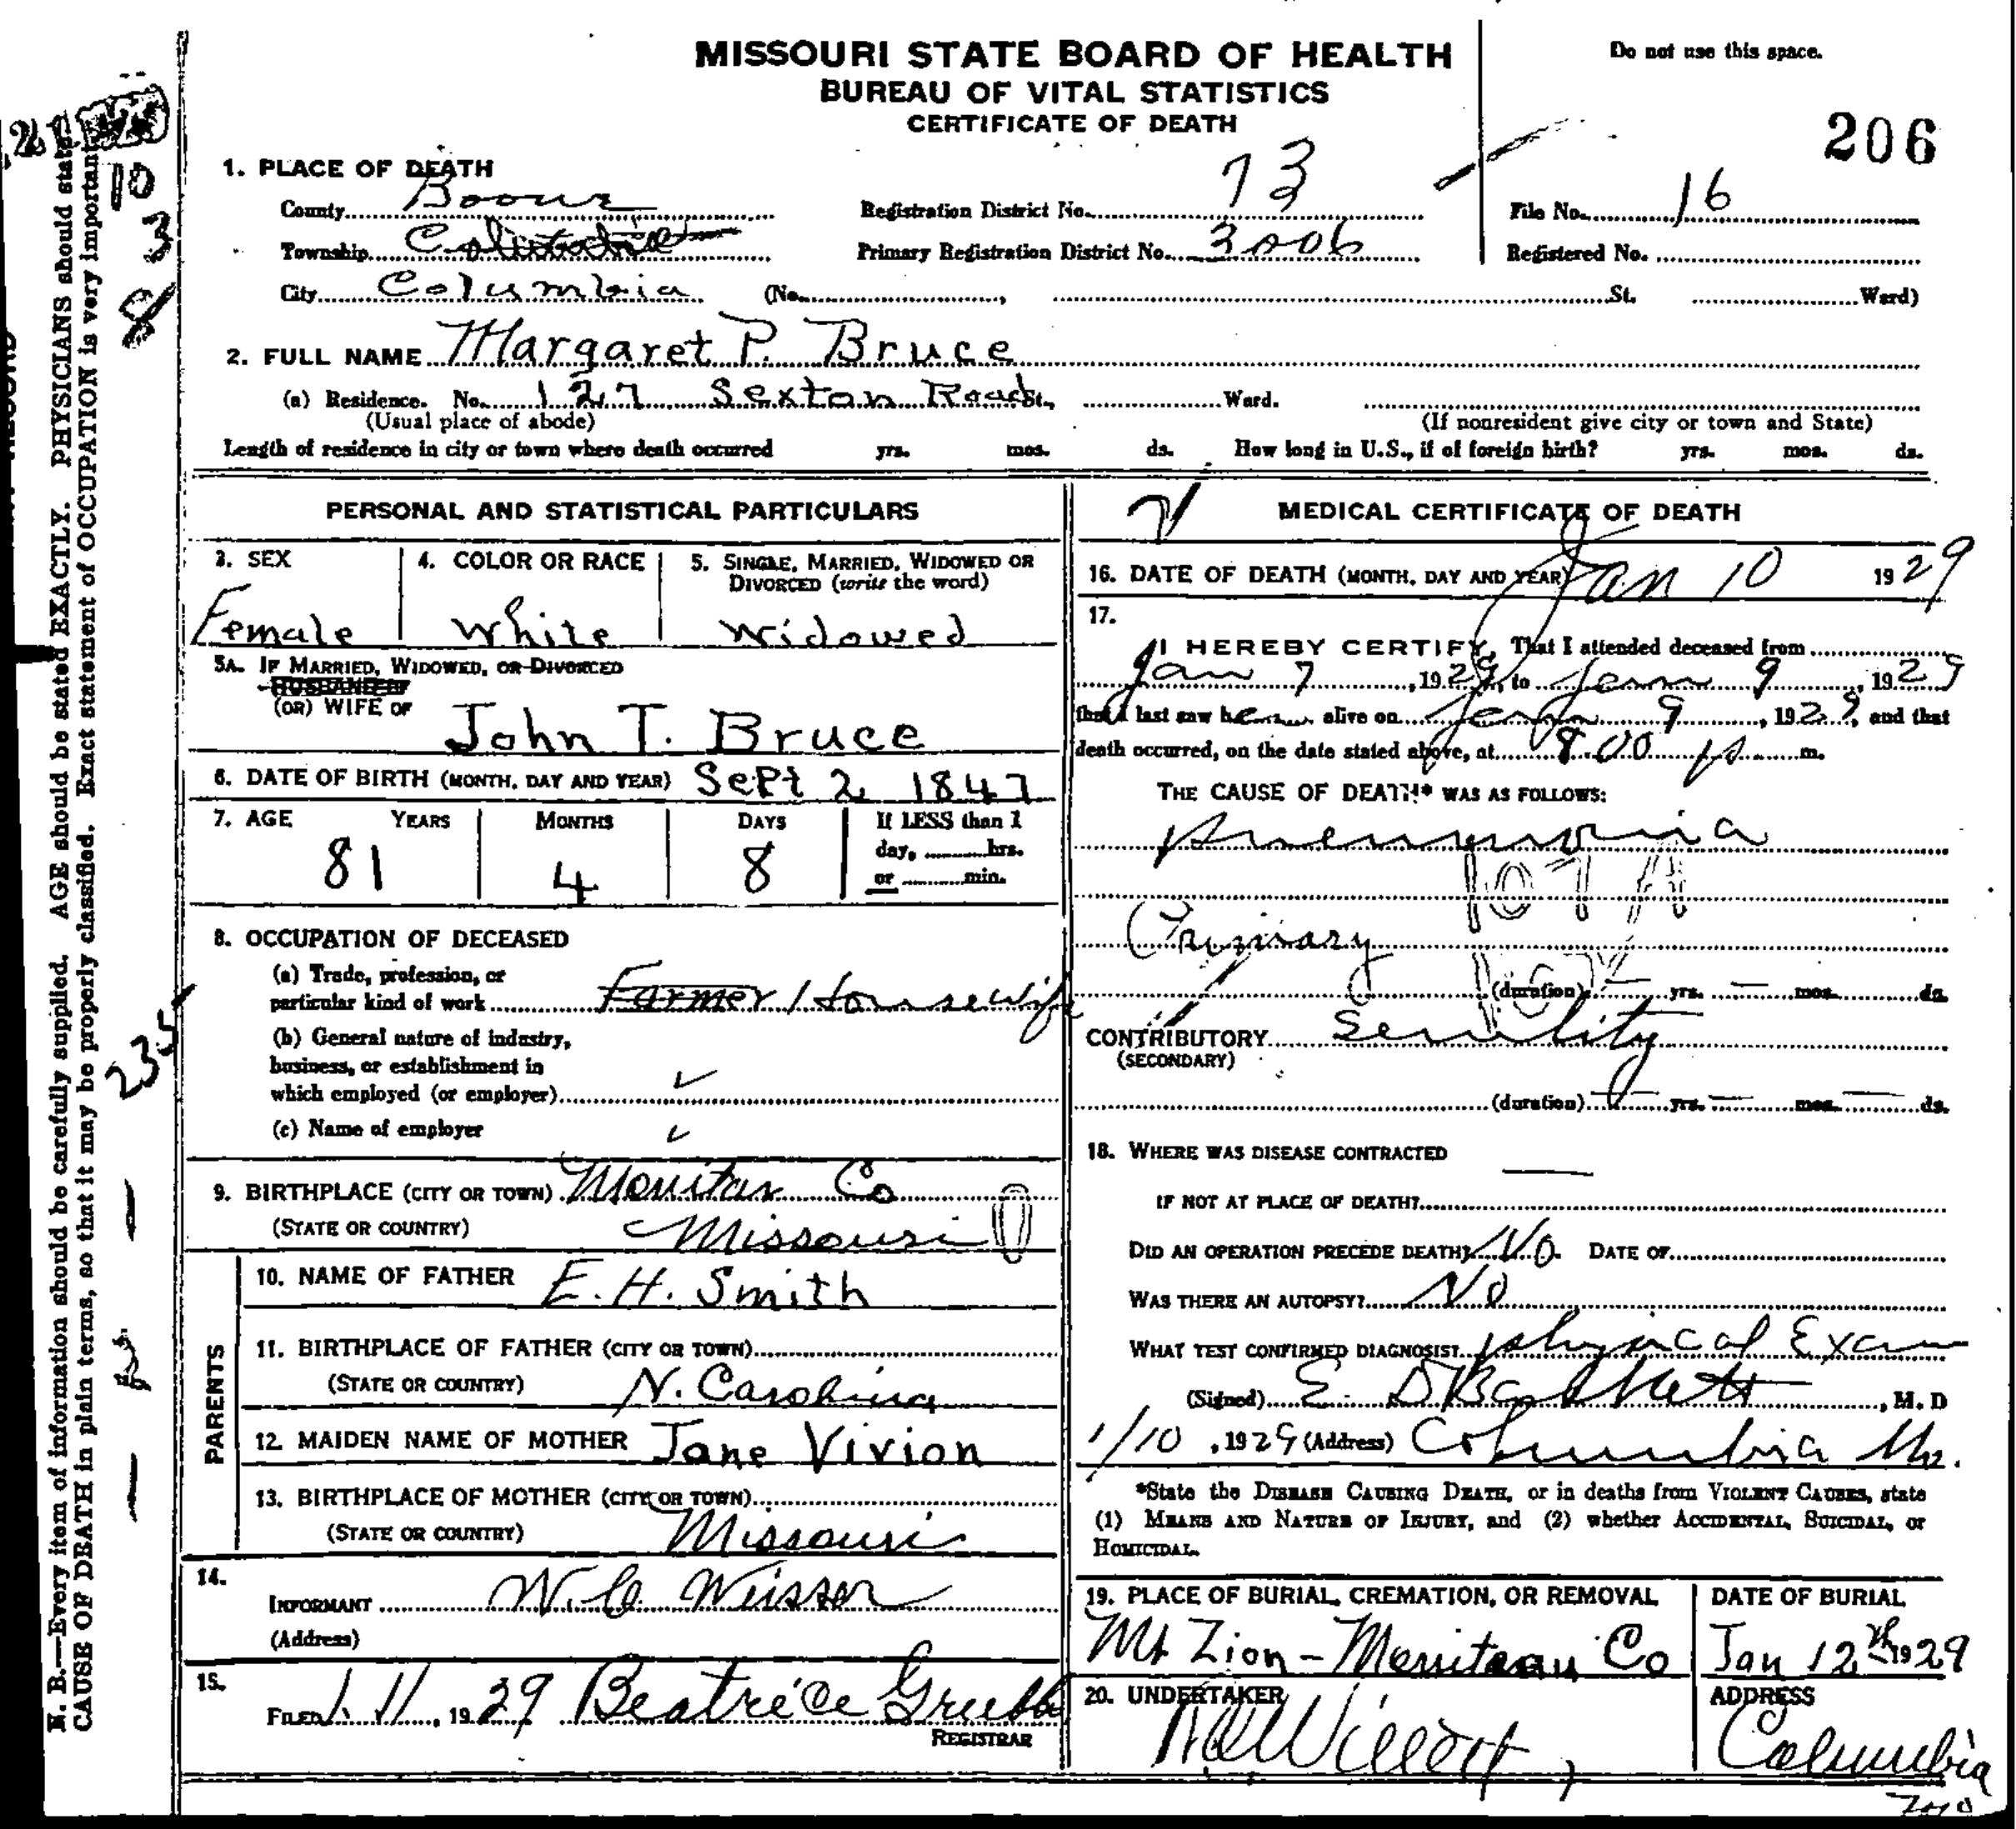 MISSOURI STATE BOARD OF HEALTH
BUREAU OF VITAL STATISTICS
CERTIFICATE OF DEATH
Do not use this space.
206
1. PLACE OF DEATH
County Boone Registration District No. 73 File No. 16
Township Primary Registration District No. 3006 Registered No.
City Columbia (No. , St. Ward)
2. FULL NAME Margaret P. Bruce
(a) Residence. No. 127 Sexton Road St., Ward.
(Usual place of abode) (If nonresident give city or town and State)
Length of residence in city or town where death occurred yrs. mos. ds. How long in U.S., if of foreign birth? yrs. mos. ds.
PERSONAL AND STATISTICAL PARTICULARS
3. SEX 4. COLOR OR RACE 5. SINGLE, MARRIED, WIDOWED OR
DIVORCED (write the word)
Female White Widowed
5A. IF MARRIED, WIDOWED, OR DIVORCED
HUSBAND OF
(OR) WIFE OF John T. Bruce
6. DATE OF BIRTH (MONTH, DAY AND YEAR) Sept 2 1847
7. AGE YEARS MONTHS DAYS If LESS than 1
day, hrs.
or min.
81 4 8
8. OCCUPATION OF DECEASED
(a) Trade, profession, or
particular kind of work Farmer Housewife
(b) General nature of industry,
business, or establishment in
which employed (or employer)
(c) Name of employer
9. BIRTHPLACE (CITY OR TOWN) Monitau Co
(STATE OR COUNTRY) Missouri
PARENTS
10. NAME OF FATHER E. H. Smith
11. BIRTHPLACE OF FATHER (CITY OR TOWN)
(STATE OR COUNTRY) N. Carolina
12. MAIDEN NAME OF MOTHER Jane Vivion
13. BIRTHPLACE OF MOTHER (CITY OR TOWN)
(STATE OR COUNTRY) Missouri
14.
INFORMANT W. C.
(Address)
15.
FILED 1.11, 1929 Beatrice
REGISTRAR
21 MEDICAL CERTIFICATE OF DEATH
16. DATE OF DEATH (MONTH, DAY AND YEAR) Jan 10 1929
17.
I HEREBY CERTIFY, That I attended deceased from
Jan 7, 1929, to Jan 9, 1929
that I last saw her alive on Jan 9, 1929, and that
death occurred, on the date stated above, at 8.00 p m.
THE CAUSE OF DEATH* WAS AS FOLLOWS:
Pneumonia
107A
Primary
(duration) yrs. mos. ds.
CONTRIBUTORY Senility
(SECONDARY)
(duration) yrs. mos. ds.
18. WHERE WAS DISEASE CONTRACTED
IF NOT AT PLACE OF DEATH?
DID AN OPERATION PRECEDE DEATH? No. DATE OF
WAS THERE AN AUTOPSY? No
WHAT TEST CONFIRMED DIAGNOSIS? physical Exam
(Signed) E. D. , M. D
1/10, 1929 (Address) Columbia Mo.
*State the DISEASE CAUSING DEATH, or in deaths from VIOLENT CAUSES, state
(1) MEANS AND NATURE OF INJURY, and (2) whether ACCIDENTAL, SUICIDAL, or
HOMICIDAL.
19. PLACE OF BURIAL, CREMATION, OR REMOVAL DATE OF BURIAL
Mt Zion - Moniteau Co Jan 12th 1929
20. UNDERTAKER ADDRESS
Willett Columbia
Mo
N. B.—Every item of information should be carefully supplied. AGE should be stated EXACTLY. PHYSICIANS should state
CAUSE OF DEATH in plain terms, so that it may be properly classified. Exact statement of OCCUPATION is very important.
10
3
8
235